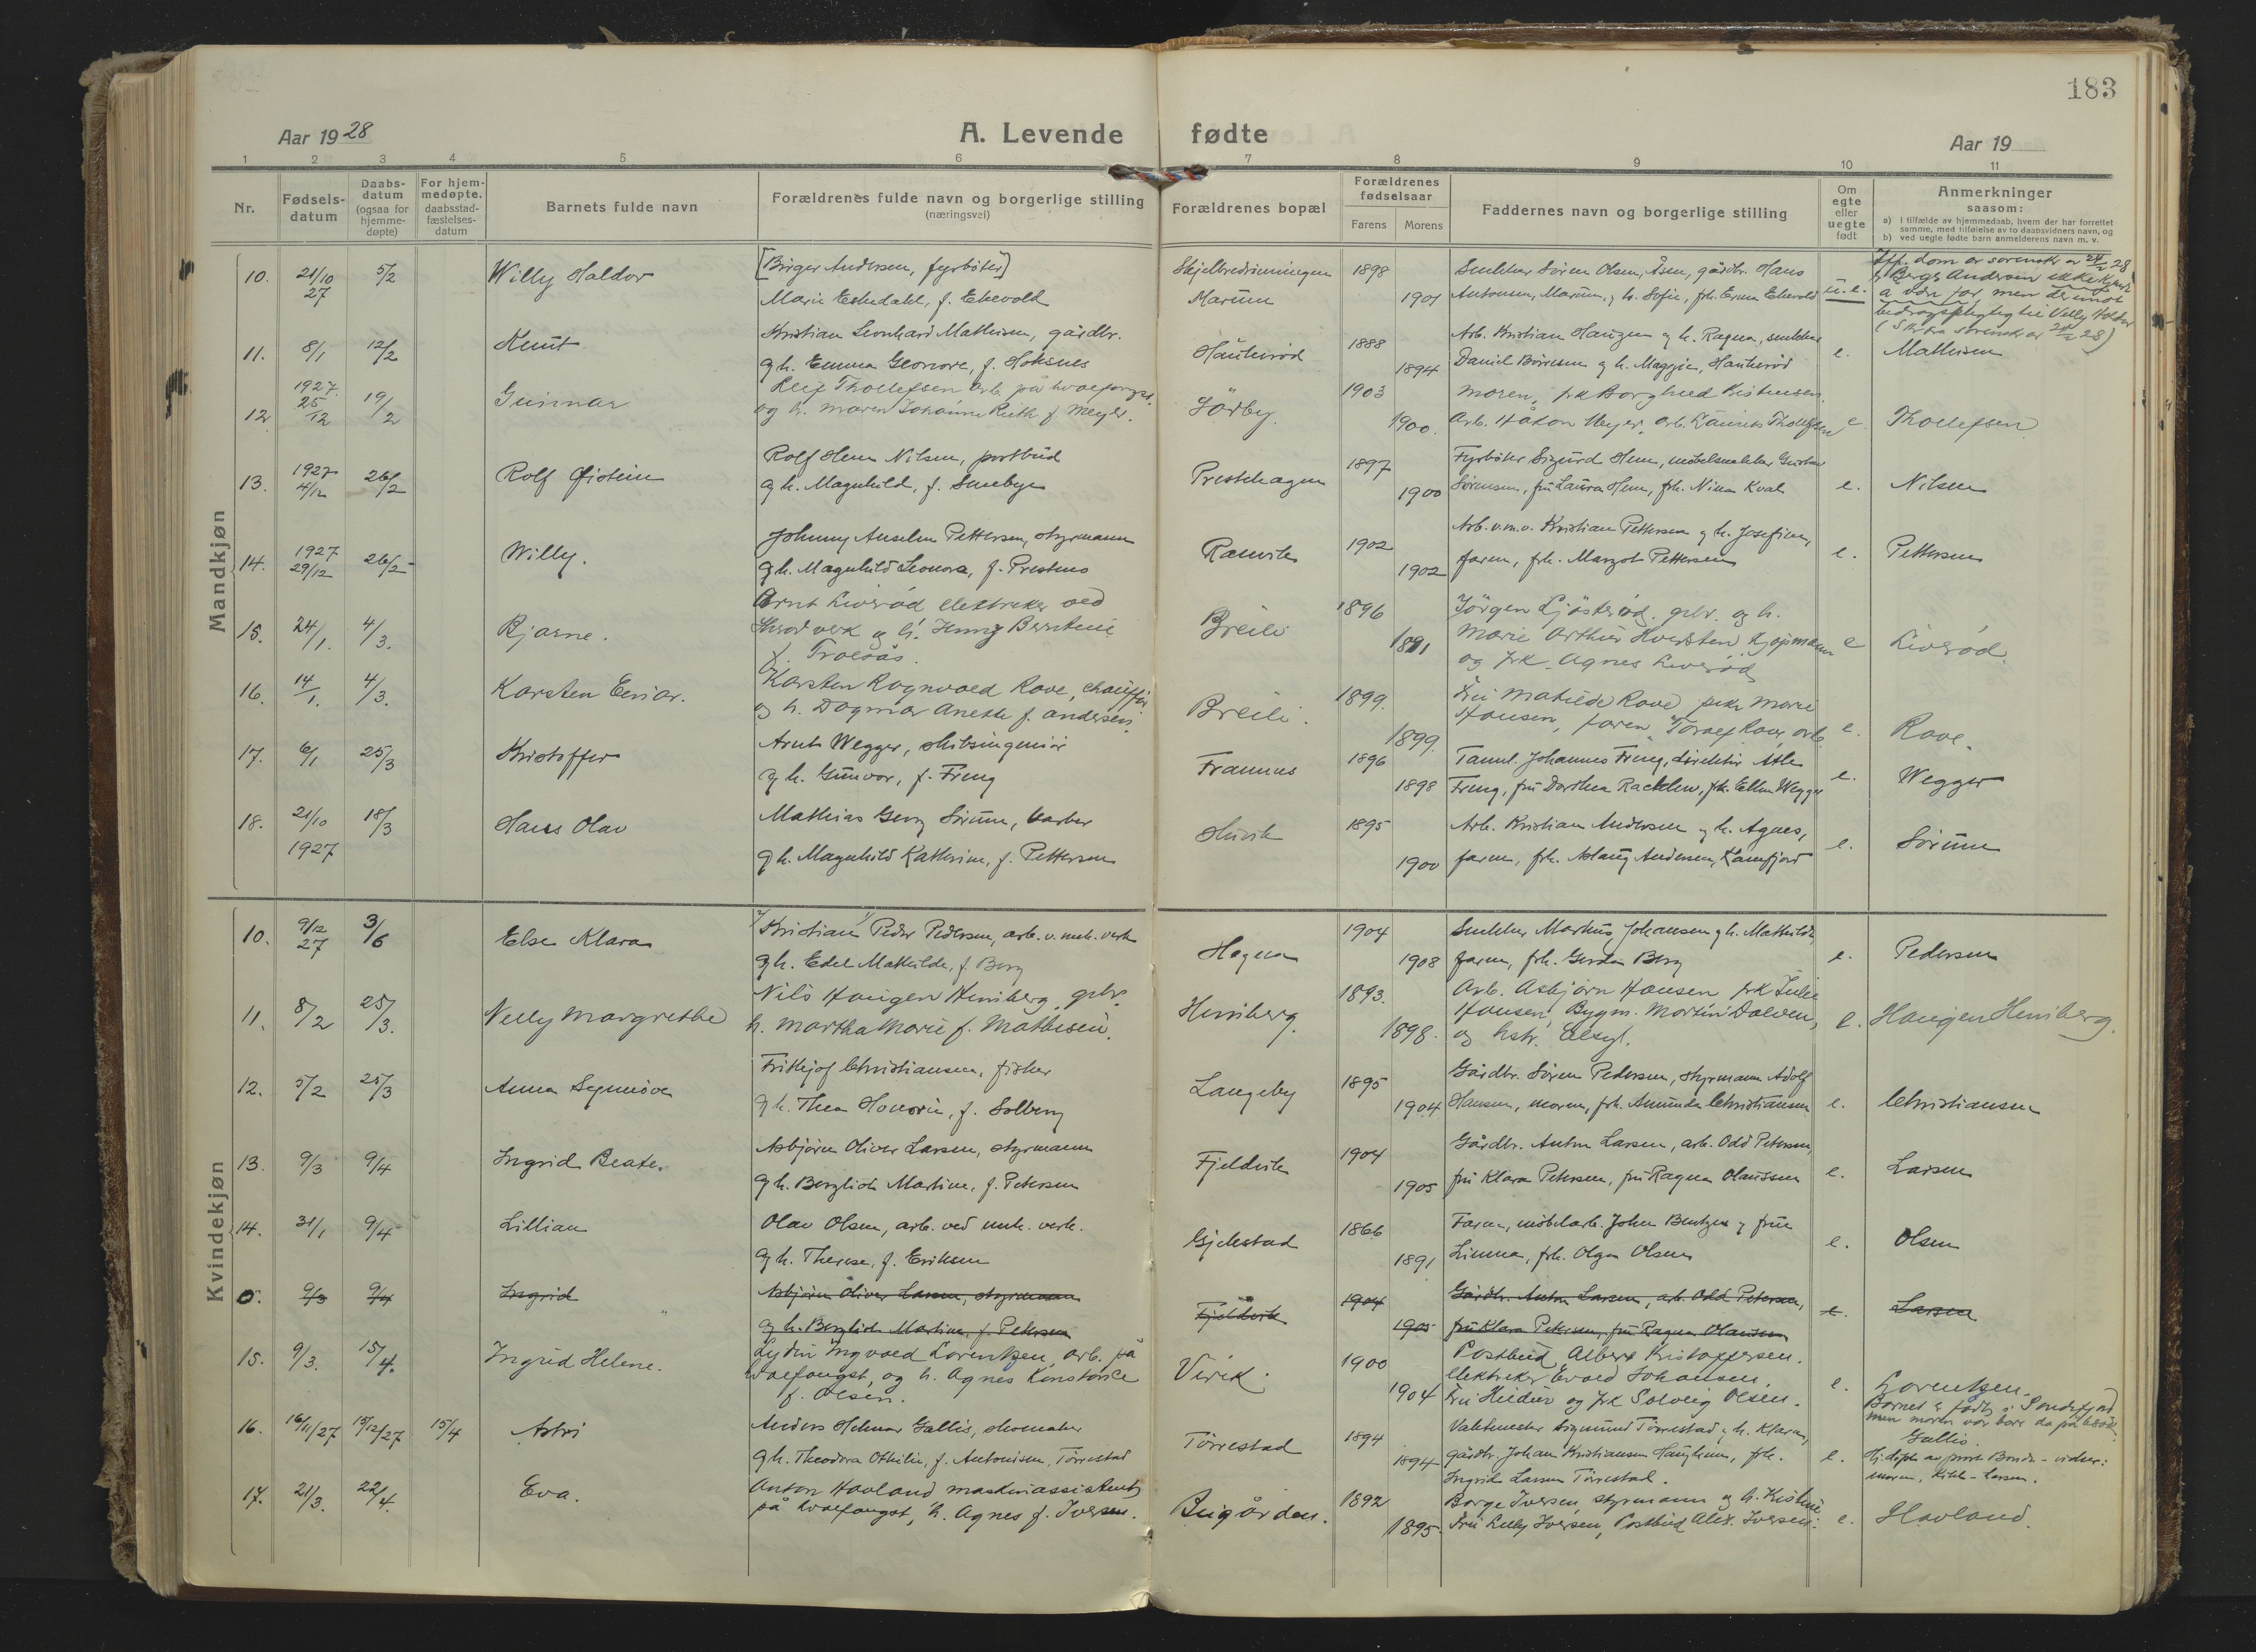 183
Aar 1928
A. Levende fødte
Aar 19
1 2 3 4 5 6 7 8 9 10 11
Nr.
Fødsels-
datum
Daabs-
datum
(ogsaa for
hjemme-
døpte)
For hjem-
medøpte,
daabsstad-
fæstelses-
datum
Barnets fulde navn
Forældrenes fulde navn og borgerlige stilling
(næringsvei)
Forældrenes bopæl
Forældrenes
fødselsaar
Farens Morens
Faddernes navn og borgerlige stilling
Om
egte
eller
uegte
født
Anmerkninger
saasom:
a) i tilfælde av hjemmedaab, hvem der har forrettet
samme, med tilføielse av to daabsvidners navn, og
b) ved uegte fødte barn anmelderens navn m. v.
Mandkjøn
10. 21/10 27 5/2 Willy Haldor [Birger Andersen, fyrbøter] 1898 Snekker Søren Olsen, Åsen, gårdbr. Hans
Marie Eskedahl, f. Ekevold 1901 Antonsen, Marum, og h. Sofie, frk. Erna Ekevold u.e.
11. 8/1 12/2 Knut Kristian Leonhard Mathisen, gårdbr. 1888 Arb. Kristian Haugen og h. Ragna, snekker
og h. Emma f. Hoksnes Haukerød 1894 Daniel Børresen og h. Maggie, Haukerød e. Mathisen
12 1927 25/12 19/2 Gunnar Leif Thollefsen arb. på hvalfangst. 1903 moren, frk Borghild Kristensen.
og h. Maren Johanne Ruth f. Meyer. Jårby. 1900. Arb. Håkon Meyer. arb. Laurits Thollefsen e Thollefsen
13. 1927 4/12 26/2 Rolf Øistein Rolf Hem Nilsen, postbud 1897 Fyrbøter Sigurd Hem, møbelsnekker Gustav
og h. Magnhild, f. Smeby Prestehagen 1900 Sørensen, fru Laura Hem, frk. Nina Kval e. Nilsen
14. 1927 29/12 26/2 Willy. Johnny Anselm Pettersen, styrmann 1902 Arb. v.m.v. Kristian Pettersen og h. Josefine,
og h. Magnhild Leonora, f. Prestnes Ranvik 1902 faren, frk. Margot Pettersen e. Pettersen
15. 24/1. 4/3. Bjarne. Arnt Liverød elektriker ved 1896 Jørgen gbr. og h.
og h. Jenny f. Troesås. Breili 1891 Marie Arthur Hvidsten Kjøpmann
og frk. Agnes Liverød e Liverød.
16. 14/1. 4/3. Karsten Einar. Karsten Rognvald Rove, chauffør 1899. Fru Matilde Rove frk. Marie
og h. Dagmar Anette f. Andersen. Breili. 1899. Hansen, faren, Toralf Rove arb. e. Rove.
17. 6/1 25/3 Kristoffer Arnt Wegger, skibsingeniør 1896 Tannl. Johannes Freng, direktør Atle
og h. Gunvor, f. Freng Framnes 1898 Freng, fru Dorthea Racklew, frk. Ellen Wegger e. Wegger
18. 21/10 1927 18/3 Hans Olav Mathias Georg Sørum, barber 1895 Arb. Kristian Andersen og h. Agnes,
og h. Magnhild Kathrine, f. Pettersen 1900 faren, frk. Aslaug Andersen, e. Sørum
Kvindekjøn
10. 9/12 27 3/6 Else Klara Kristian Peder Pedersen, arb. v. mek. verk. 1904 Snekker Markus Johansen og h. Mathilde,
og h. Edel Mathilde, f. Berg Hegna 1908 faren, frk. Gerda Berg e. Pedersen
11. 8/2 25/3. Nelly Margrethe Nils Haugen Himberg, gbr. 1893. Arb. Asbjørn Hansen frk Julie
h. Martha Marie f. Mathisen. Himberg. 1898. Hansen, Bygm. Martin Dalven,
og hstr. e. Haugen Himberg.
12. 5/2 25/3 Anna Synnøve Frithjof Christiansen, fisker 1895 Gårdbr. Søren Pedersen, styrmann Adolf
og h. Thea Honorie, f. Solberg Langeby 1904 Hansen, moren, frk. Amunda Christiansen e. Christiansen
13. 9/3 9/4 Ingrid Beate. Asbjørn Oliver Larsen, styrmann 1904 Gårdbr. Anton Larsen, arb. Odd Petersen,
og h. Bergliot Martine, f. Petersen Fjeldvik 1905 fru Klara Petersen, fru Ragna Olaussen e. Larsen
14. 31/1 9/4 Lillian Olav Olsen, arb. ved mek. verk. 1866 Faren, møbelarb. John Bentzen og frue
og h. Therese, f. Eriksen Gjekstad 1891 frk. Olga Olsen e. Olsen
0. 9/3 9/4 Ingrid Asbjørn Oliver Larsen, styrmann 1904 Gårdbr. Anton Larsen, arb. Odd Petersen,
og h. Bergliot Martine, f. Petersen Fjeldvik 1905 fru Klara Petersen, fru Ragna Olaussen e. Larsen
15. 9/3. 15/4. Ingrid Helene. Ingvald Lorentzen, arb. på 1900 Postbud Albert Kristoffersen.
hvalfangst, og h. Agnes Konstance Virik. elektriker Evald Johansen.
f. Olsen. 1904 Fru og frk Solveig Olsen. e. Lorentzen.
16. 16/11/27 15/12/27 15/4 Astri Anders Helmer Gallis, skomaker 1894 Vaktmester Sigmund Tørrestad og h. Klara,
og h. Theodora Othilie, f. Antonisen, Tørrestad Tørrestad 1894 gårdbr. Johan Kristiansen Haugheim, frk.
Ingrid Larsen Tørrestad. e. Barnet er født i Sandefjord
men moren var bare da på besøk.
Gallis.
Hj.døpt av prost Bonde - vidner:
moren, Larsen.
17. 21/3. 22/4. Eva. Anton Havland maskinassistent 1892 Borge Iversen, styrmann og h. Kistine
på hvalfangst, h. Agnes f. Iversen. Bugården. 1895. Fru Lilly Iversen, Postbud Alex. Iversen. e. Havland.